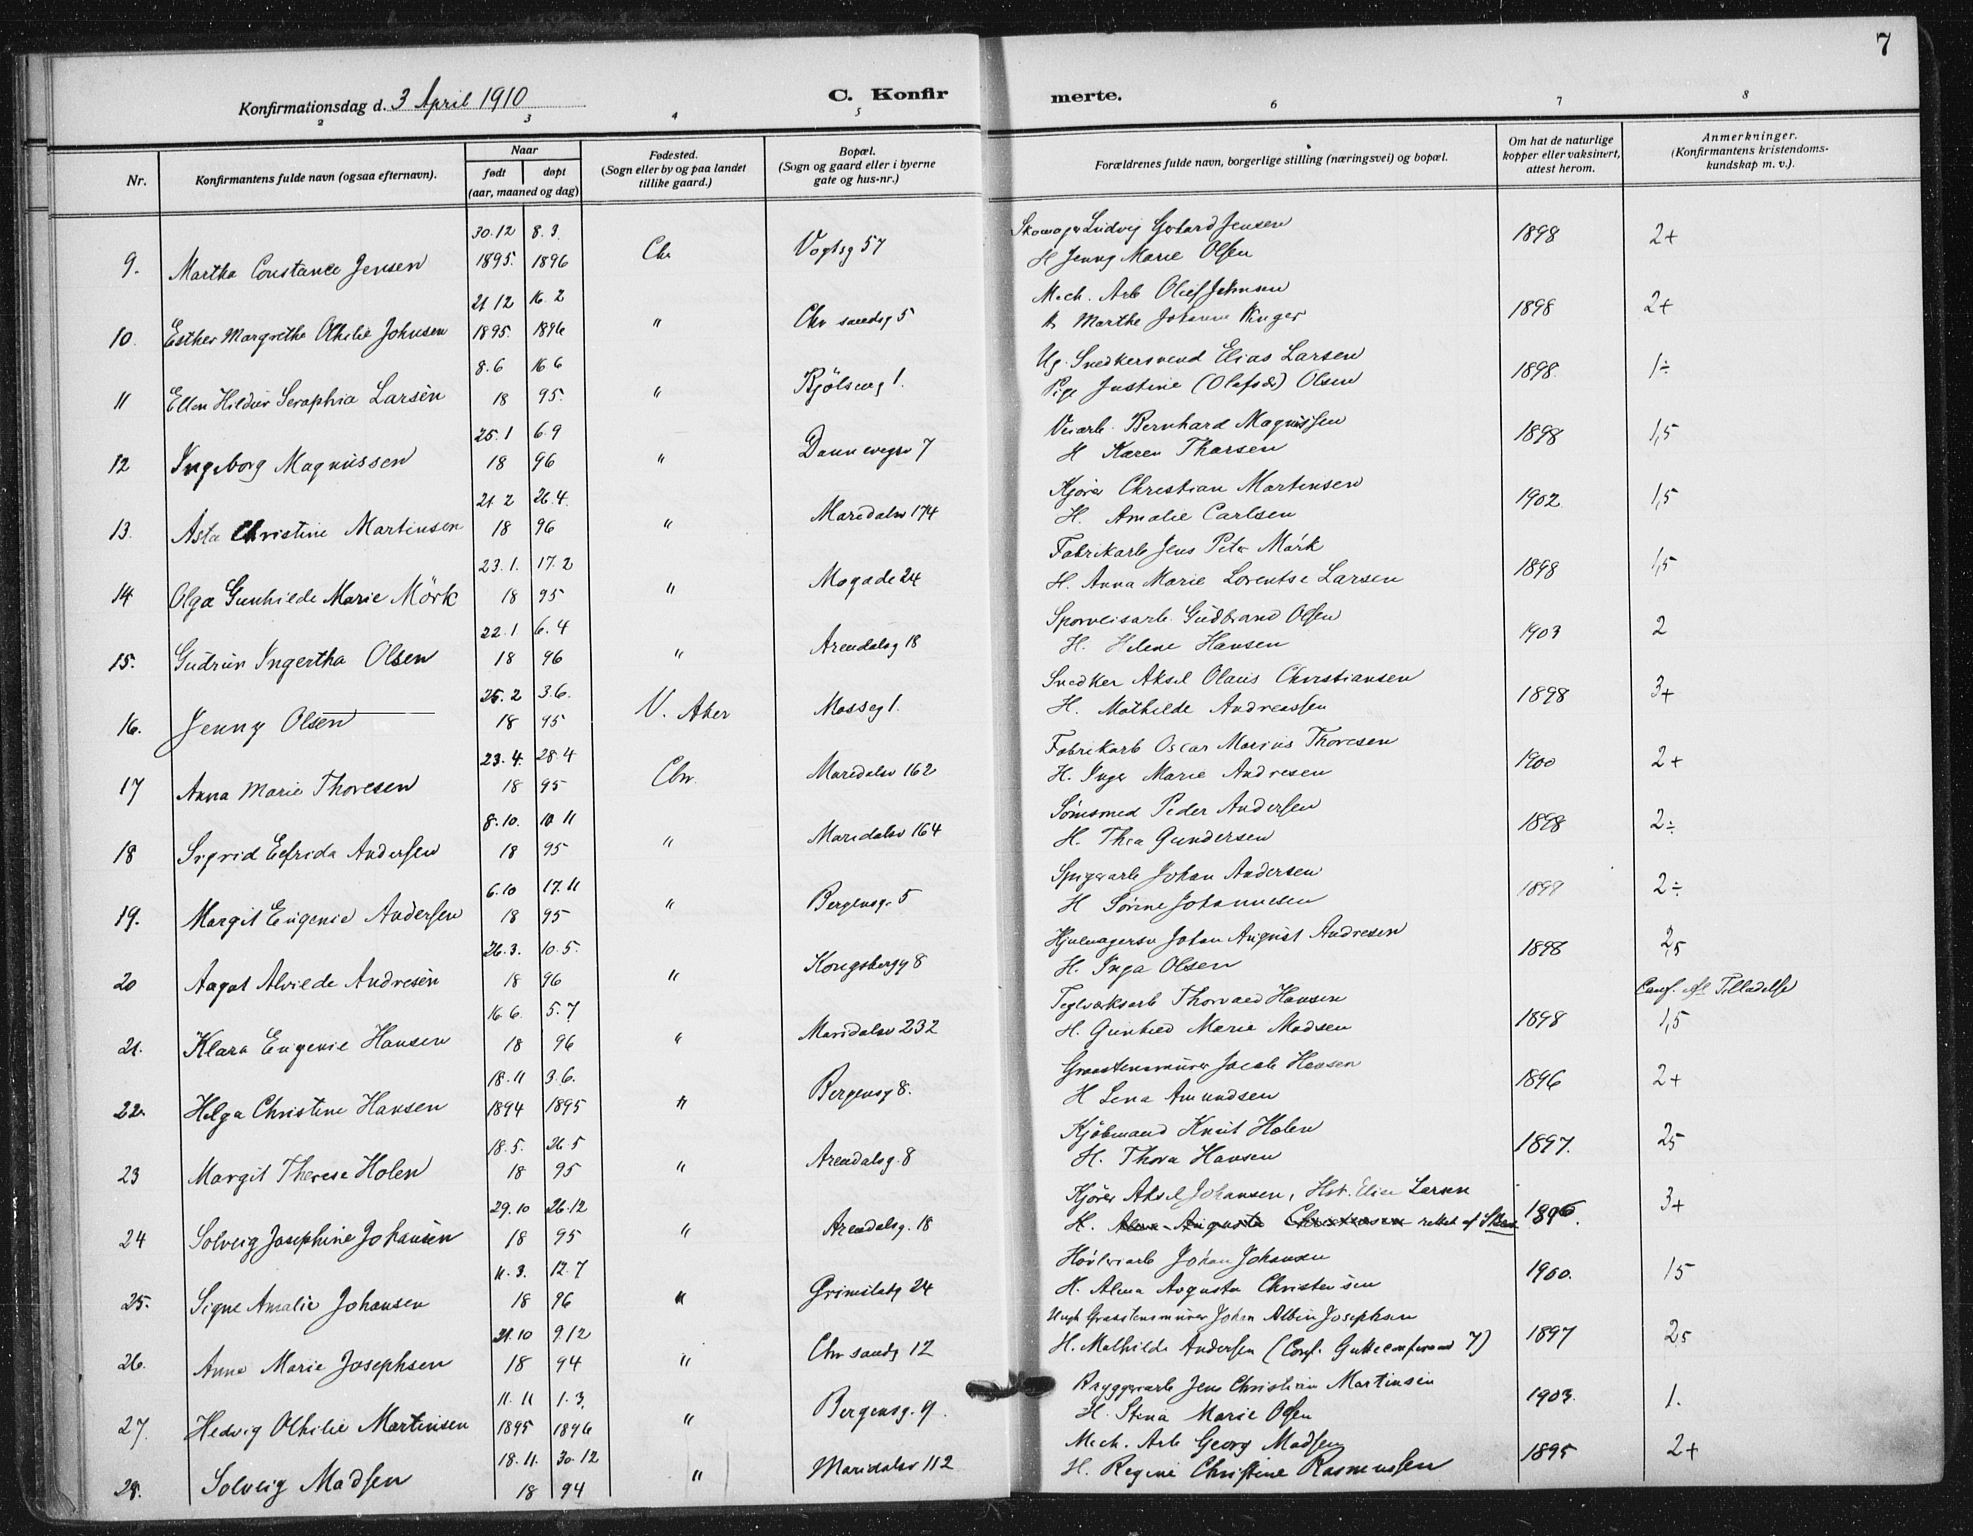 7
Konfirmationsdag d. 3 April 1910
C. Konfir merte.
2 3 4 5 6 7 8
Nr.
Konfirmantens fulde navn (ogsaa efternavn).
Naar
født døpt
(aar, maaned og dag)
Fødested.
(Sogn eller by og paa landet
tillike gaard.)
Bopæl.
(Sogn og gaard eller i byerne
gate og hus-nr.)
Forældrenes fulde navn, borgerlige stilling (næringsvei) og bopæl.
Om hat de naturlige
kopper eller vaksinert,
attest herom.
Anmerkninger.
(Konfirmantens kristendoms-
kundskap m. v.).
30.12 8.3. Skomager Ludvig Gerhard Jensen
9. Martha Constance Jensen 1895. 1896 Chr Vogtsg 57 H Jenny Marie Olsen 1898 2+
21 12 16.2 Mech. Arb Oluf Johnsen
10. Esther Margrethe Othilie Johnsen 1895. 1896 " Chr sandsg 5 H Marthe Johanne 1898 2+
8.6 16 6 Ug. Snedkersvend Elias Larsen
11 Ellen Hildur Seraphia Larsen 18 95. " Kjölsveg 1. Pige Justine (Olafsd) Olsen 1898. 1÷
25.1 6.9 Veiarb. Bernhard Magnussen
12 Ingeborg Magnussen 18 96 " Dannevegsv 7 H Karen Thorsen 1898 1,5
21.2 26.4. Kjører Christian Martinsen
13. Asta Christine Martinsen 18 96 " Maridalsv 174 H. Amalie Carlsen 1902 1,5
23.1. 17.2 Fabrikarb Jens Peter Mörk
14 Olga Gunhilde Marie Mörk 18 95 " Mogade 24 H. Anna Marie Lorentse Larsen 1898 1,5
22.1 6.4 Sporveisarb. Gudbrand Olsen
15. Gudrun Ingertha Olsen 18 96 " Arendalsg 18 H. Helene Hansen 1903 2
25.2 3.6. Snedker Aksel Olaus Christiansen
16. Jenny Olsen 18 95 V. Aker Mosseg 1. H. Mathilde Andreassen 1898 3+
23.4. 28.4 Fabrikarb Oscar Marius Thoresen
17 Anna Marie Thoresen 18 95 Chr. Maridalsv 162 H. Inger Marie Andresen 1900 2+
8.10. 10 11 Sømsmed Peder Andersen
18 Sigrid Elfrida Andersen 18 95 " Maridalsv 164 H. Thea Gundersen 1898 2÷
6.10 17.11 Spigerarb Johan Andersen
19. Margit Eugenie Andersen 18 95 " Bergensg. 5 H Sørine Johannesen 1898 2÷
26.3. 10.5. Hjulmagersv Johan August Andresen
20 Aagot Alvilde Andresen 18 96 " Kongsbergg 8 H. Inga Olsen 1898 2,5
16.6. 5.7 Teglværksarb Thorvald Hansen Conf. eft Tilladelse
21. Klara Eugenie Hansen 18 96 " Maridalsv 232 H. Gunhild Marie Madsen 1898 1,5
18.11 3.6. Graastensmurer Jacob Hansen
22. Helga Christine Hansen 1894 1895 " Bergensg 8. H Lena Amundsen 1896 2+
18.5. 26.5 Kjøbmand Knut Holen
23 Margit Therese Holen 18 95 " Arendalsg. 8 H. Thora Hansen 1897. 25
29.10 26.12 Kjører Aksel Johansen, Hst. Elise Larsen
24 Solveig Josephine Johansen 18 95 " Arendalsg. 18 H. Alma Augusta Christensen rettet af 1896. 3+
11.3. 12.7 Høvleriarb Johan Johansen
25. Signe Amalie Johansen 18 96 " Grimstadg 24 H. Alma Augusta Christensen 1900. 15
21.10 9.12 Ungk Graastensmurer Johan Albin Josephsen
26. Anna Marie Josephsen 18 94 " Chr sandsg 12 H. Mathilde Andersen (Conf. Gutteconfirmand 7) 1897 25
11.11 1.3. Bryggeriarb Jens Christian Martinsen
27. Hedvig Othilie Martinsen 1895 1896 " Bergensg. 9. H. Stina Marie Olsen 1903. 1.
18.11. 30.12 Mech. Arb Georg Madsen
28. Solveig Madsen 18 94 " Maridalsv 112 H. Regine Christine Rasmussen 1895 2+